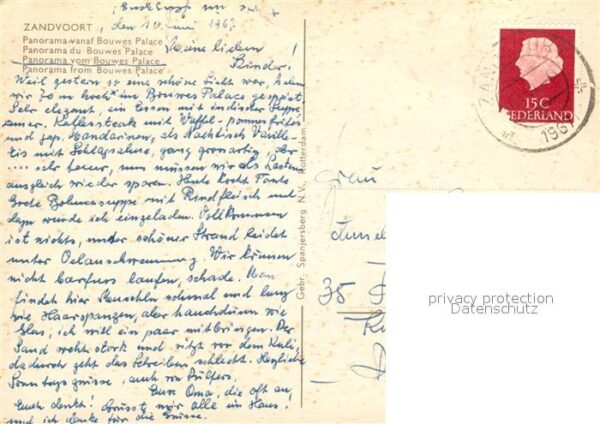 ZANDVOORT, den 10. Juni 1967
Panorama vanaf Bouwes Palace
Panorama du Bouwes Palace
Panorama vom Bouwes Palace
Panorama from Bouwes Palace
Meine lieben Kinder!
Weil gestern so eine schöne Sicht war, haben
wir 70 m hoch im Bouwes Palace gespeist.
Sehr elegant, ein Essen mit indischer Suppe
Kalbssteak und Waffel-pommes frites
und jap. Mandarinen, als Nachtisch Vanille-
Eis mit Schlagsahne, ganz grossartig, aber
.... sehr teuer, nun müssen wir als Lasten-
ausgleich wieder sparen. Heute kocht Tante
Grete Bohnensuppe mit Rindfleisch und
dazu wurde ich eingeladen. Vollkommen
ist nichts, unser schöner Strand leidet
unter Oelanschwemmung. Wir können
nicht barfuss laufen, schade. Man
findet hier Muscheln schmal und lang
wie Haarspangen, aber hauchdünn wie
Glas, ich will ein paar mitbringen. Der
Sand weht stark und ritzt vor dem Kuli,
dadurch geht das Schreiben schlecht. Herzliche
Sonntagsgrüsse, auch von
Eure Oma, die oft an
Euch denkt! Grüsst mir alle im Haus!
und ich danke für die Grüsse.
Gebr. Spanjersberg N.V., Rotterdam
15 C
NEDERLAND
1967
Frau
35
privacy protection
Datenschutz